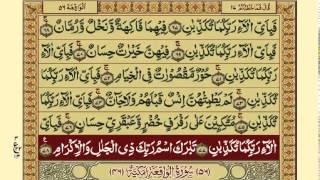 قال فما خطبكم ٢٧ الواقعة ٥٦
فَبِاَيِّ اٰلَآءِ رَبِّكُمَا تُكَذِّبٰنِ ﴿٦٧﴾ فِيْهِمَا فَاكِهَةٌ وَّنَخْلٌ وَّرُمَّانٌ ﴿٦٨﴾
فَبِاَيِّ اٰلَآءِ رَبِّكُمَا تُكَذِّبٰنِ ﴿٦٩﴾ فِيْهِنَّ خَيْرٰتٌ حِسَانٌ ﴿٧٠﴾
فَبِاَيِّ اٰلَآءِ رَبِّكُمَا تُكَذِّبٰنِ ﴿٧١﴾ حُوْرٌ مَّقْصُوْرٰتٌ فِي الْخِيَامِ ﴿٧٢﴾
فَبِاَيِّ اٰلَآءِ رَبِّكُمَا تُكَذِّبٰنِ ﴿٧٣﴾ لَمْ يَطْمِثْهُنَّ اِنْسٌ قَبْلَهُمْ وَلَا جَآنٌّ ﴿٧٤﴾ فَبِاَيِّ اٰلَآءِ
رَبِّكُمَا تُكَذِّبٰنِ ﴿٧٥﴾ مُتَّكِـِٕيْنَ عَلٰى رَفْرَفٍ خُضْرٍ وَّعَبْقَرِيٍّ حِسَانٍ ﴿٧٦﴾ فَبِاَيِّ
اٰلَآءِ رَبِّكُمَا تُكَذِّبٰنِ ﴿٧٧﴾ تَبٰرَكَ اسْمُ رَبِّكَ ذِي الْجَلٰلِ وَالْاِكْرَامِ ﴿٧٨﴾
(٥٦) سُوْرَةُ الْوَاقِعَةِ مَكِّيَّةٌ (٤٦)